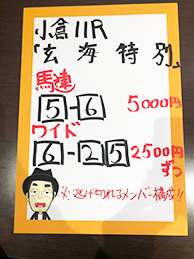 小倉11R
「玄海特別」
馬連
5-6 5000円
ワイド
6-25 2500円
ずつ
〆 逃げ切れるメンバー構成!!